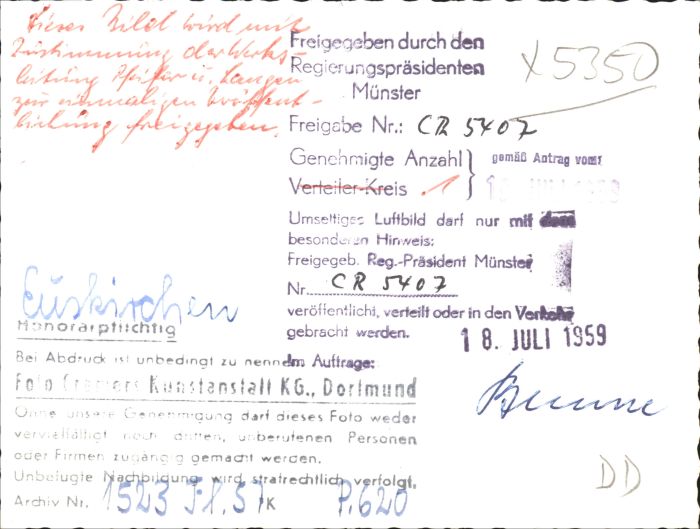 Dieses Bild wird mit
Zustimmung der Werks
leitung Pfeifer u. Langen
zur einmaligen Veröffent-
lichung freigegeben.
Freigegeben durch den
Regierungspräsidenten
Münster
X 5350
Freigabe Nr.: CR 5407
Genehmigte Anzahl
Verteiler-Kreis
1
gemäß Antrag vom:
Umseitiges Luftbild darf nur mit dem
besonderen Hinweis:
Freigegeb. Reg.-Präsident Münster
Nr. CR 5407
veröffentlicht, verteilt oder in den Verkehr
gebracht werden.
18. JULI 1959
Im Auftrage:
Euskirchen
Honorarpflichtig
Bei Abdruck ist unbedingt zu nennen
Foto Cramers Kunstanstalt KG., Dortmund
Ohne unsere Genehmigung darf dieses Foto weder
vervielfältigt noch dritten, unberufenen Personen
oder Firmen zugängig gemacht werden.
Unbefugte Nachbildung wird strafrechtlich verfolgt.
Archiv Nr. 1523 K P. 620
DD